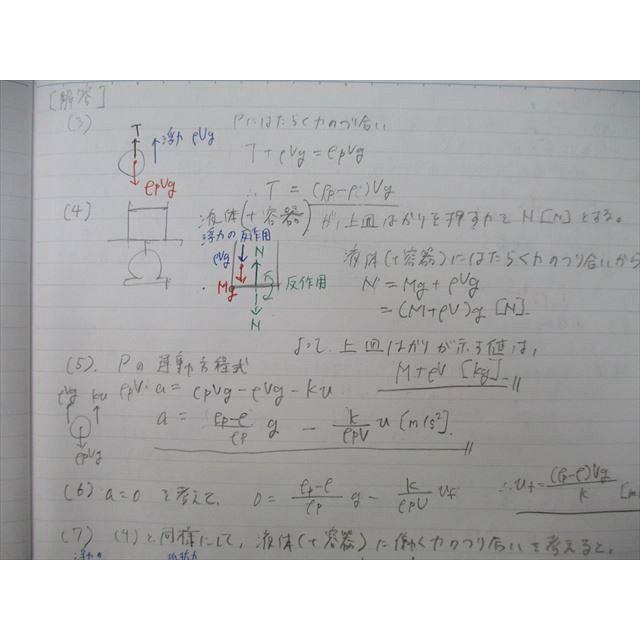 [解答]
(3) Pにはたらく力のつり合い
T 浮力 ρVg
T+ρVg=ρpVg
ρpVg
∴ T = (ρp-ρ)Vg
(4) 液体(+容器)が、上皿はかりを押す力を N[N]とする。
浮力の反作用
ρVg N
Mg 反作用
N
液体(+容器)にはたらく力のつり合いから
N = Mg + ρVg
= (M+ρV)g [N].
よって、上皿はかりが示す値は,
M+ρV [kg]
(5). Pの運動方程式
ρVg ku
ρpV・a = ρpVg-ρVg-ku
ρpVg
a = ρp-ρ/ρp g - k/ρpV u [m/s²].
(6) a=0 を考えて, 0 = ρp-ρ/ρp g - k/ρpV uf ∴uf = (ρp-ρ)Vg/k [m
(7) (4)と同様にして, 液体(+容器)に働く力のつり合いを考えると,